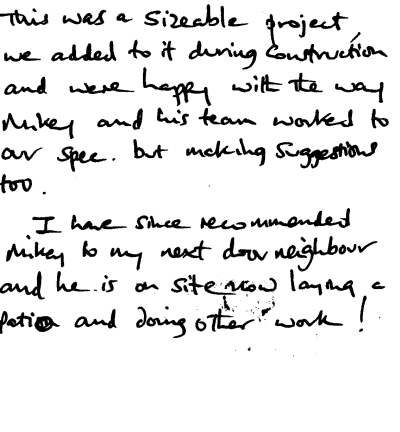 This was a sizeable project,
we added to it during construction
and were happy with the way
Mikey and his team worked to
our spec. but making suggestions
too.
I have since recommended
Mikey to my next door neighbour
and he is on site now laying a
patio and doing other work!